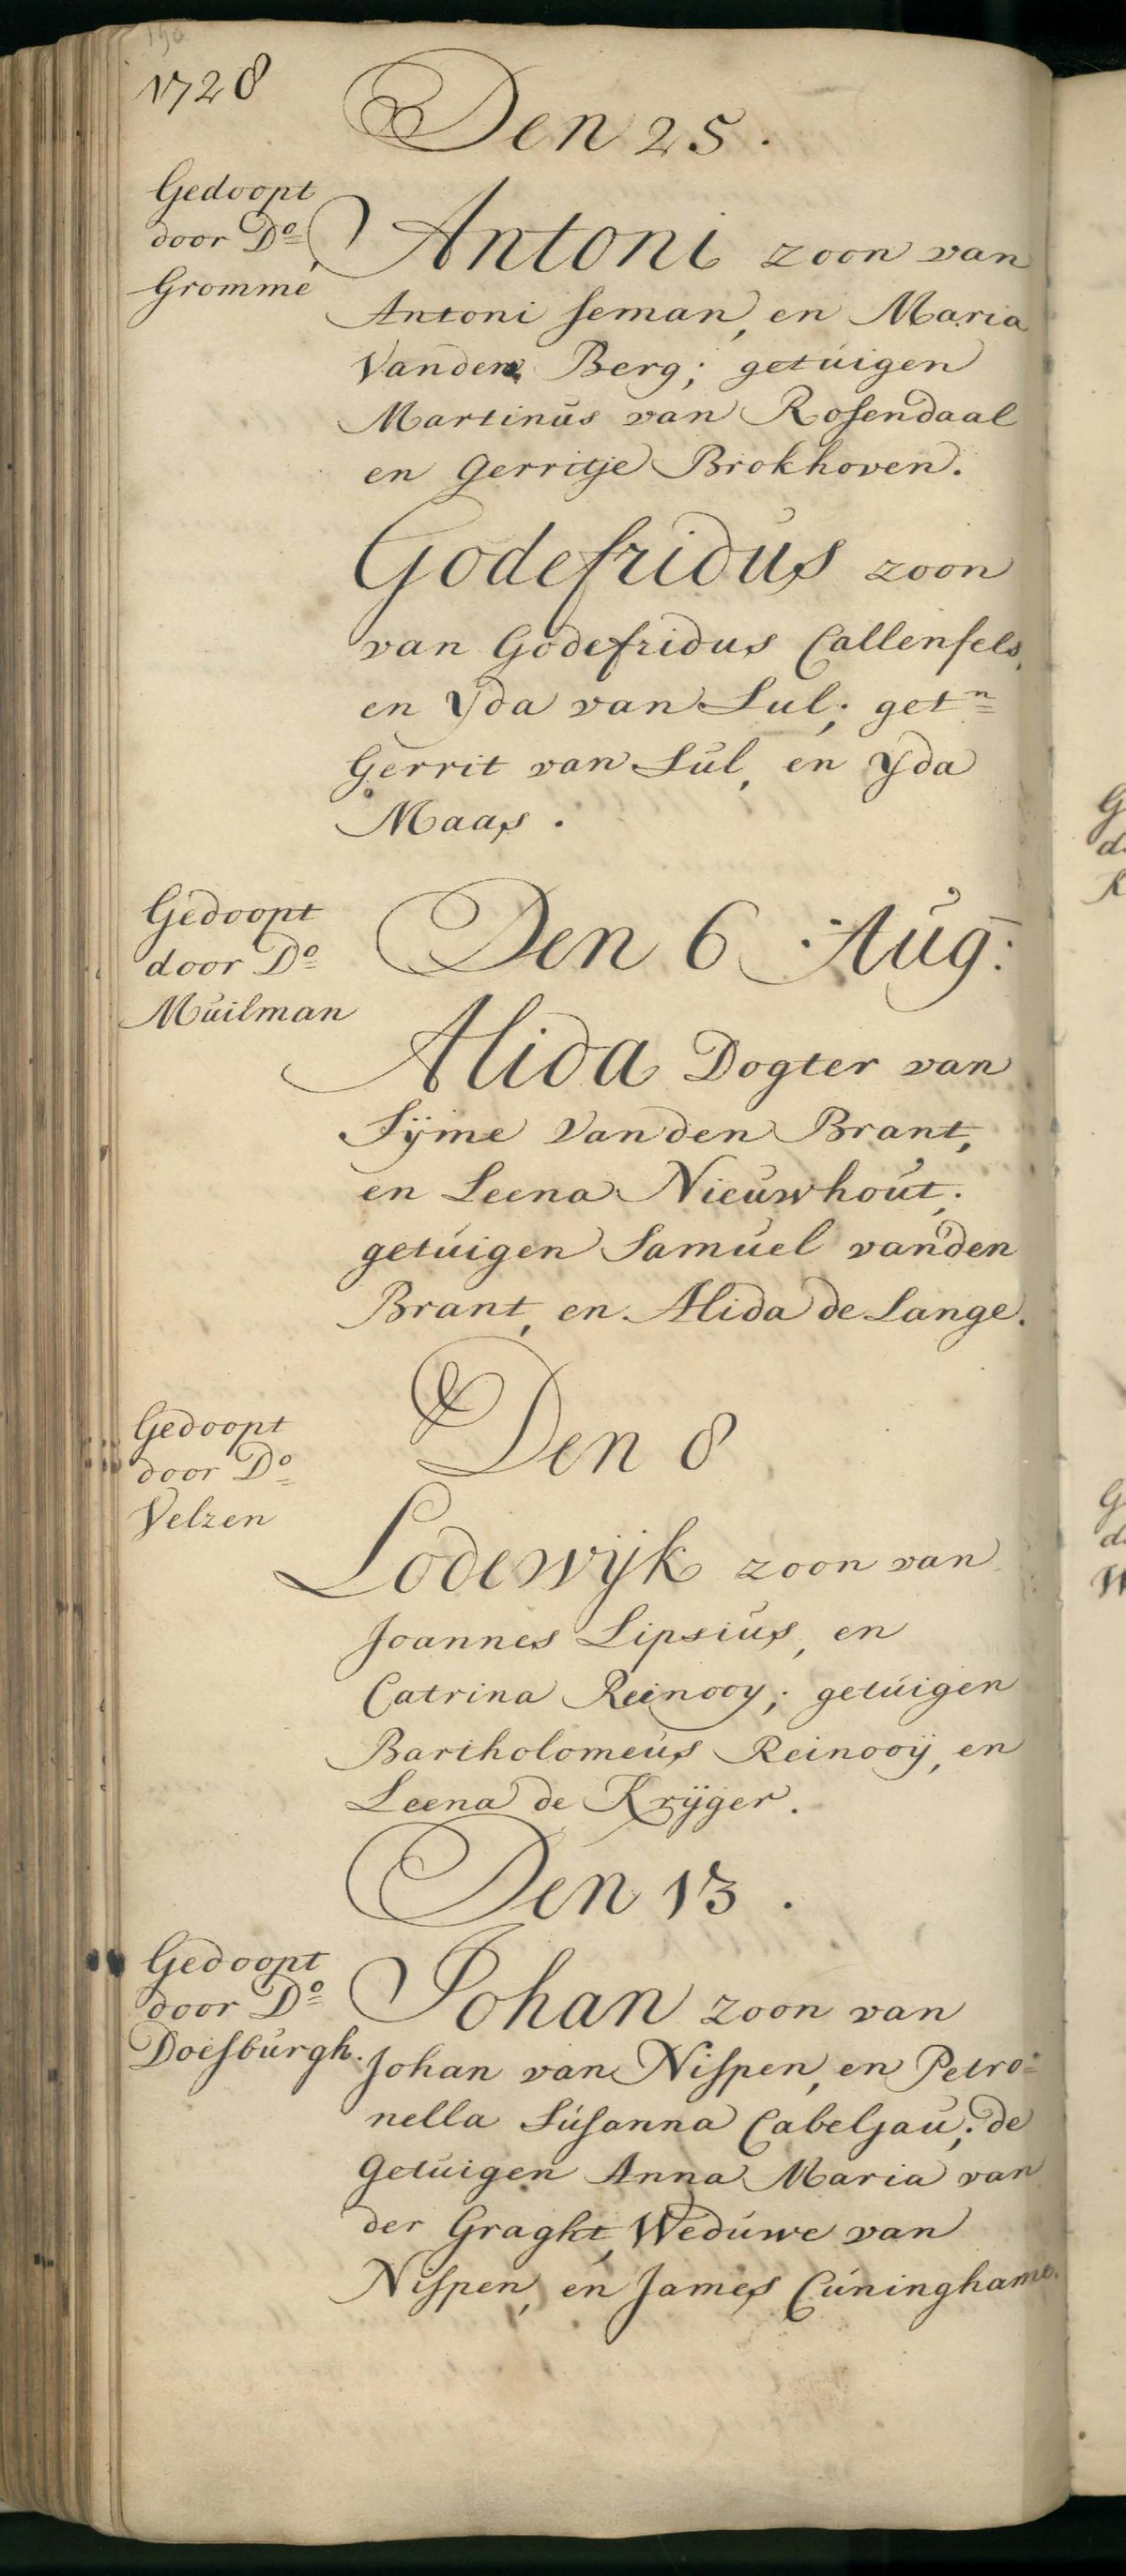 1728
Den 25.
Gedoopt
door Do
Gromme
Antoni zoon van
Antoni Seman, en Maria
Vanden Berg; getuigen
Martinus van Rosendaal
en Gerritje Brokhoven.
Godefridus zoon
van Godefridus Callenfels,
en Yda van Lul; getn
Gerrit van Lul, en Yda
Maas.
Gedoopt
door Do
Muilman
Den 6 Aug:
Alida Dogter van
Sijme Vanden Brant,
en Leena Nieuwhout;
getuigen Samuel vanden
Brant, en Alida de Lange.
Gedoopt
door Do
Velzen
Den 8
Lodewijk zoon van
Joannes Lipsius, en
Catrina Reinooy; getuigen
Bartholomeus Reinooij, en
Leena de Krijger.
Den 13.
Gedoopt
door Do
Doesburgh.
Johan zoon van
Johan van Nispen, en Petro=
nella Susanna Cabeljau; de
Getuigen Anna Maria van
der Graght, Weduwe van
Nispen, en James Cuninghame.